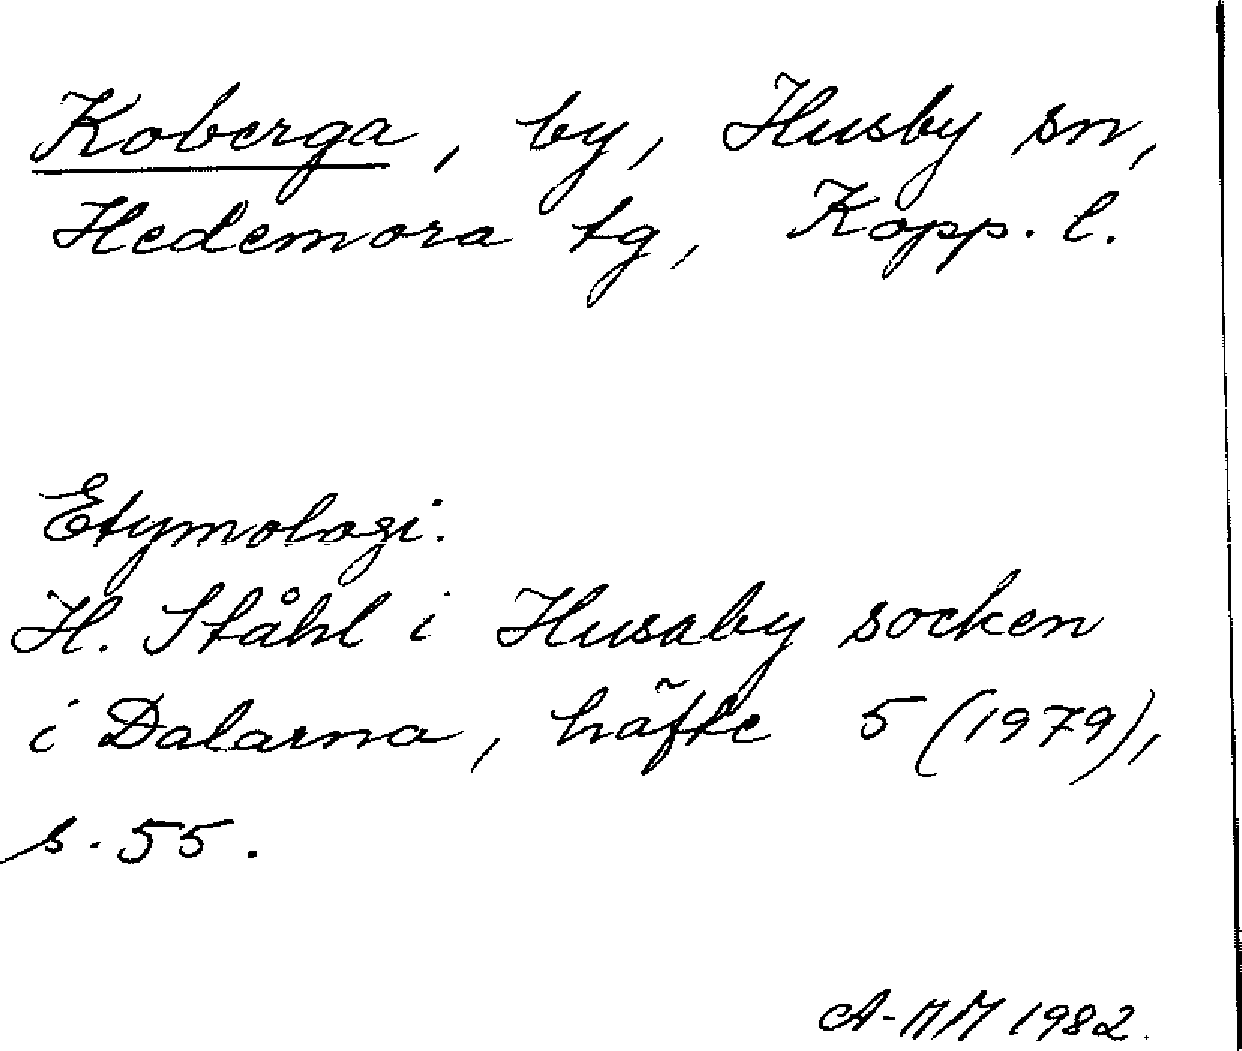 Koberga, by, Husby sn,
Hedemora tg, Kopp. l.
Etymologi.
H. Ståhl i Husaby socken
i Dalarna, häfte 5 (1979),
s. 55.
A-MM 1982.